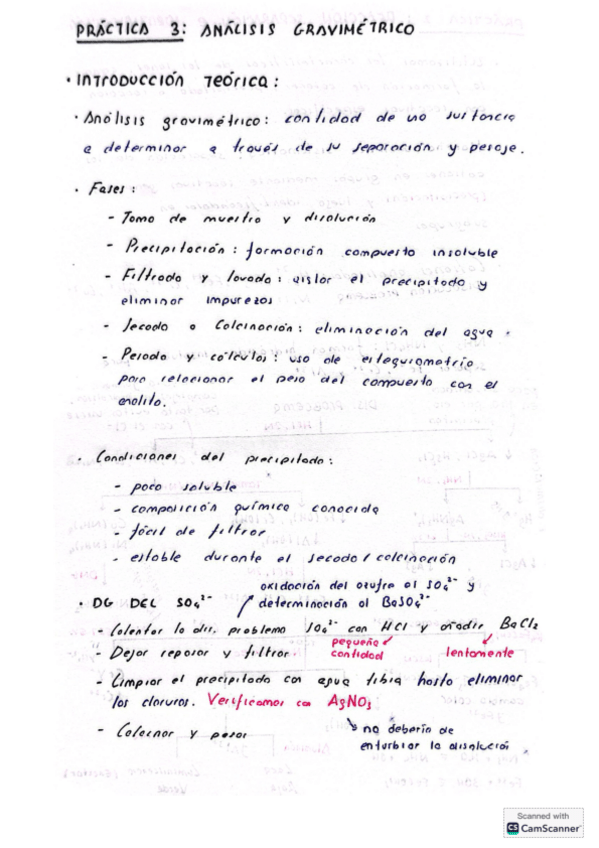 PRÁCTICA 3: ANÁLISIS GRAVIMÉTRICO
· INTRODUCCIÓN TEÓRICA:
· Análisis gravimétrico: cantidad de una sustancia
a determinar a través de su separación y pesaje.
· Fases:
- Toma de muestra y disolución
- Precipitación: formación compuesto insoluble
- Filtrado y lavado: aislar el precipitado y
eliminar impurezas
- Secado o Calcinación: eliminación del agua
- Pesada y cálculos: uso de estequiometría
para relacionar el peso del compuesto con el
analito.
· Condiciones del precipitado:
- poco soluble
- composición química conocida
- fácil de filtrar
- estable durante el secado/calcinación
oxidación del azufre al SO₄²⁻ y
· DG DEL SO₄²⁻ ↗ determinación al BaSO₄²⁻
- Calentar la dis. problema SO₄²⁻ con HCl y añadir BaCl₂
pequeña
- Dejar reposar y filtrar cantidad lentamente
- Limpiar el precipitado con agua tibia hasta eliminar
los cloruros. Verificamos con AgNO₃
- Calcinar y pesar ↳ no debería de
enturbiar la disolución
Scanned with
CS CamScanner